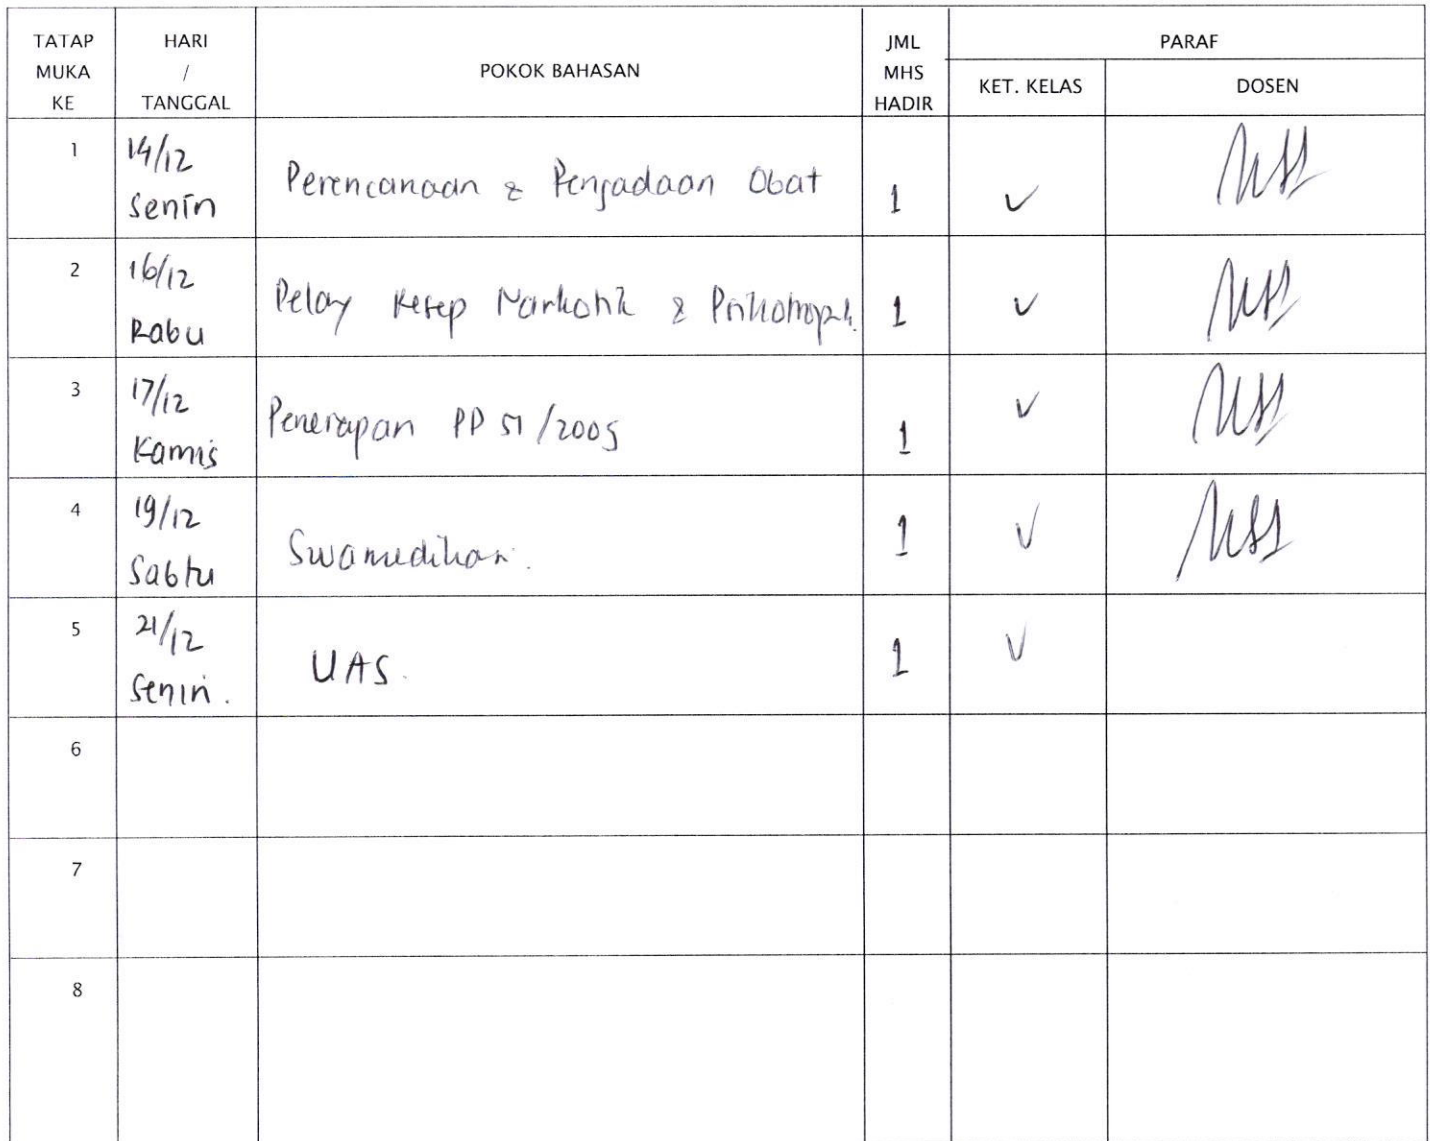 TATAP MUKA KE
HARI / TANGGAL
POKOK BAHASAN
JML MHS HADIR
PARAF
KET. KELAS
DOSEN
1 14/12 Senin Perencanaan & Pengadaan Obat 1 ✓
2 16/12 Rabu Pelay Resep Narkotik & Psikotropik. 1 ✓
3 17/12 Kamis Penerapan PP 51/2009 1 ✓
4 19/12 Sabtu Swamedikasi. 1 ✓
5 21/12 Senin. UAS. 1 ✓
6
7
8